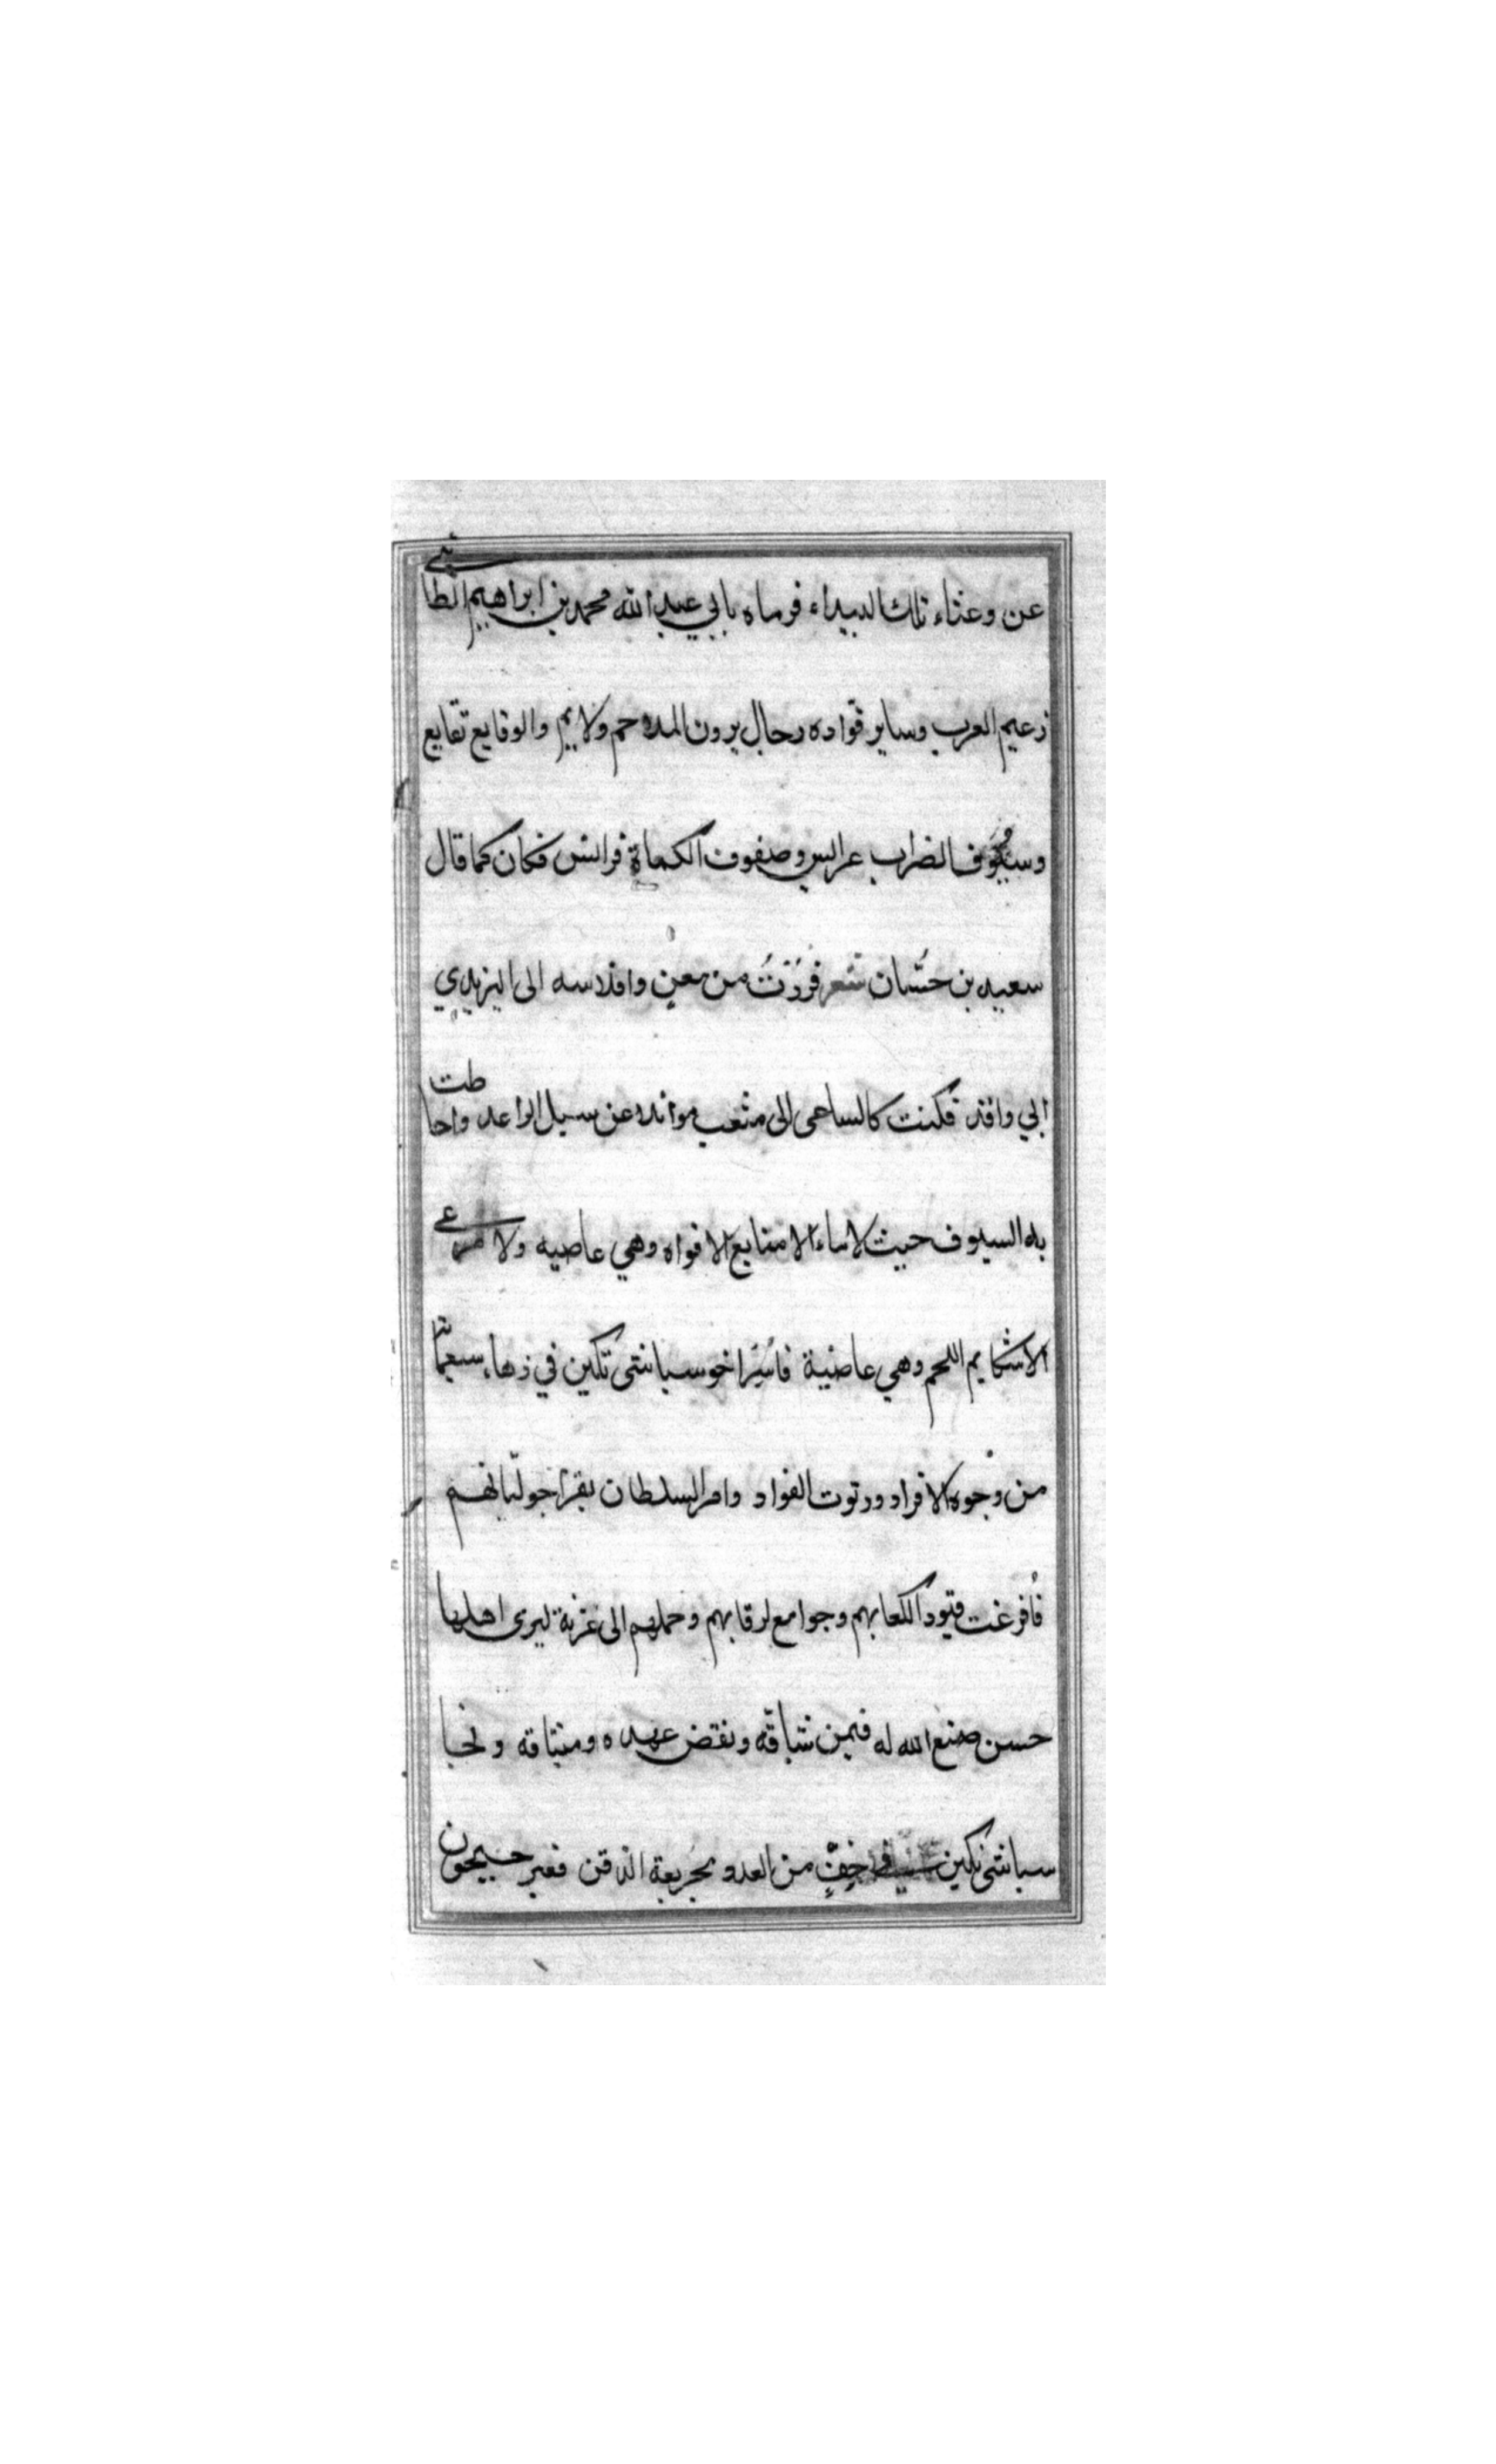 عن وعثاء تلك البيداء فرماه بابي عبد الله محمد بن ابراهيم الطائي
زعيم العرب وساير قواده رجال يرون الملاحم ولايم والوقايع نقايع
وسيوف الضراب عرايس وصفوف الكماة فرايس فكان كما قال
سعيد بن حسّان شعر فررتُ من معنٍ وافلاسه الى اليزيدي
ابي واقد فكنت كالساعى الى مثعب موائلا عن سيل الراعد واحاطت
به السيوف حيث لا ماء الا منابع الافواه وهي عاصيه ولا مرعى
الا شكايم اللجم وهي عاضية فاسر اخو سباشى تكين في زهاء سبعمائة
من وجوه الافراد ورتوت القواد وامر السلطان بقرا جولياتهم
فأفرغت قيود الكعابهم وجوامع لرقابهم وحملهم الى غزنة ليرى اهلها
حسن صنع الله له فيمن شاقّه ونقض عهده وميثاقه ونجا
سباشى تكين في خفٍّ من العدو بجريعة الذقن فعبر جيحون